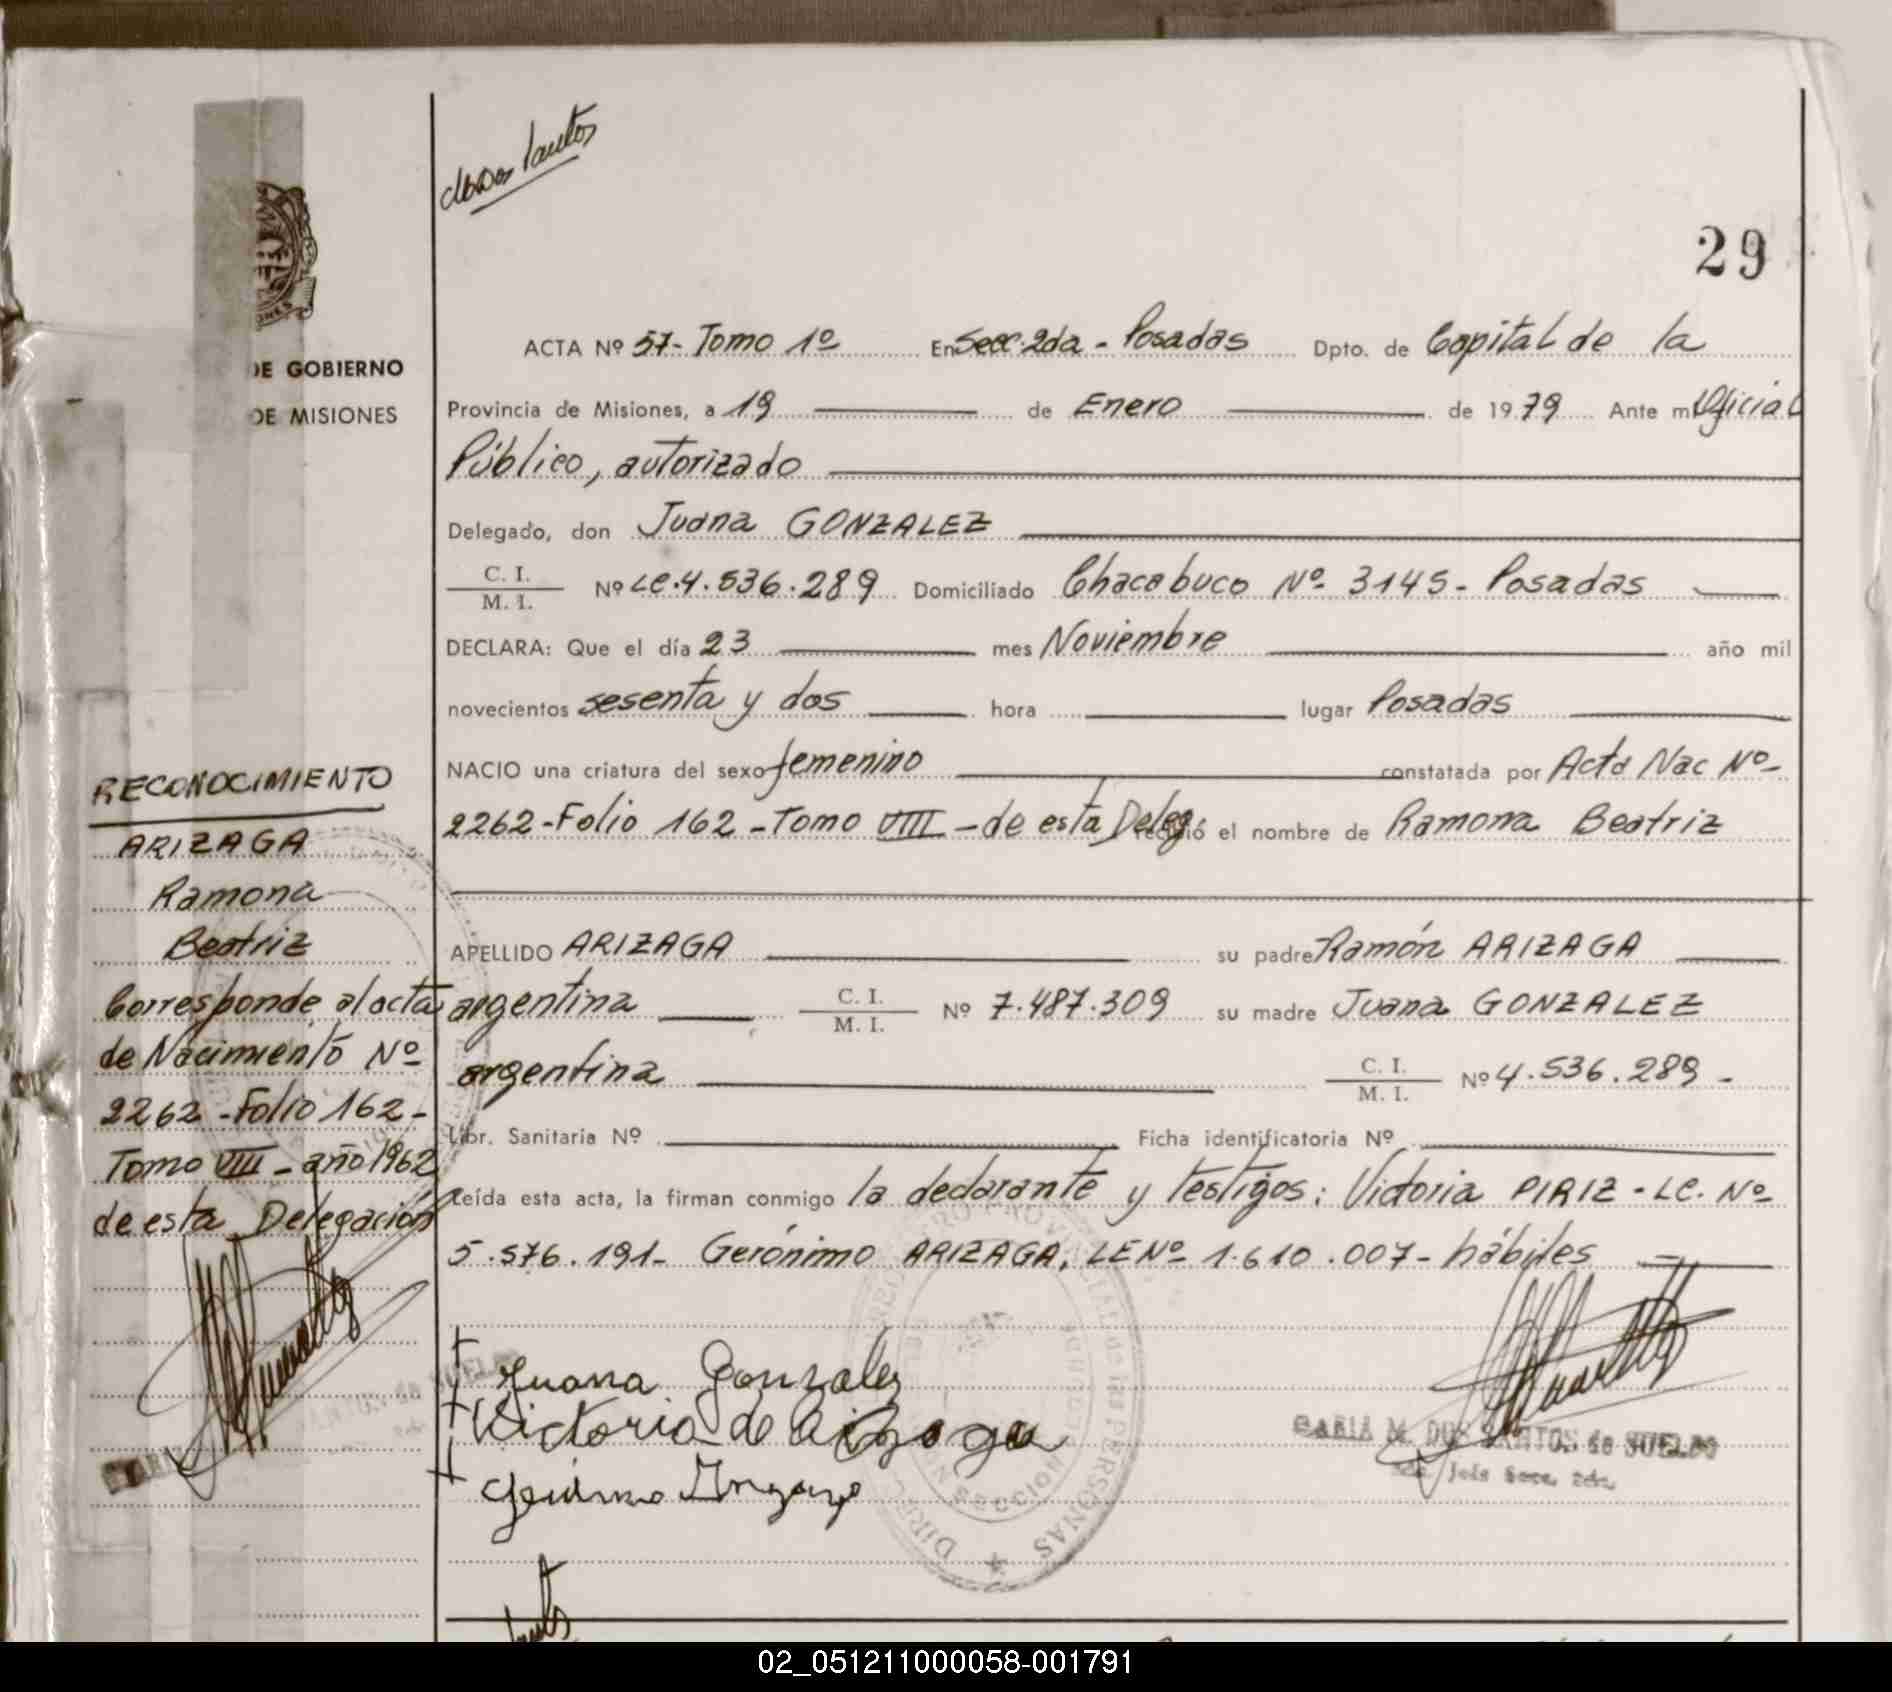 29
DE GOBIERNO
DE MISIONES
RECONOCIMIENTO
ARIZAGA
Ramona
Beatriz
Corresponde al acta
de Nacimiento Nº
2262 - Folio 162 -
Tomo VIII - año 1962
de esta Delegación
ACTA Nº 57 - Tomo 1º En Secc. 2da - Posadas Dpto. de Capital de la
Provincia de Misiones, a 19 de Enero de 1979 Ante mi Oficial
Público, autorizado
Delegado, don Juana GONZALEZ
C. I. / M. I. Nº LC. 4.536.289 Domiciliado Chacabuco Nº 3145 - Posadas
DECLARA: Que el día 23 mes Noviembre año mil
novecientos sesenta y dos hora lugar Posadas
NACIO una criatura del sexo femenino constatada por Acta Nac Nº
2262 - Folio 162 - Tomo VIII - de esta Deleg. recibió el nombre de Ramona Beatriz
APELLIDO ARIZAGA su padre Ramón ARIZAGA
argentina C. I. / M. I. Nº 7.487.309 su madre Juana GONZALEZ
argentina C. I. / M. I. Nº 4.536.289 -
Libr. Sanitaria Nº Ficha identificatoria Nº
Leída esta acta, la firman conmigo la declarante y testigos: Victoria PIRIZ - LC. Nº
5.576.191 - Gerónimo ARIZAGA, LE Nº 1.610.007 - hábiles
Juana Gonzalez
Victoria de
M. DOS SANTOS de SUELDO
02_051211000058-001791